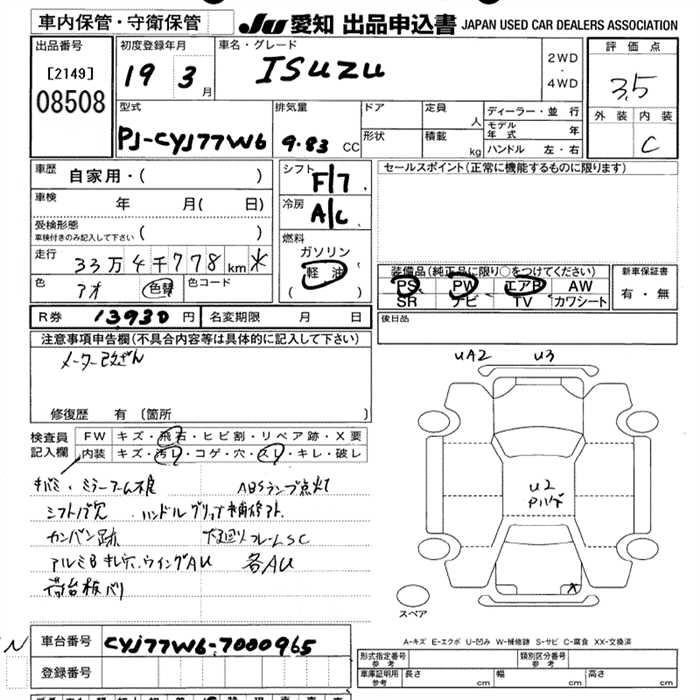 車内保管・守衛保管
JU 愛知 出品申込書 JAPAN USED CAR DEALERS ASSOCIATION
出品番号
[2149]
08508
初度登録年月
19 3 月
車名・グレード
ISUZU
2WD
・
4WD
評価点
3.5
外装 内装
C
型式
PJ-CYJ77W6
排気量
9.83 CC
ドア
形状
定員 人
積載 kg
ディーラー・並行
モデル年式 年
ハンドル 左・右
車歴 自家用・( )
車検 年 月( 日)
受検形態
車検付きのみ記入して下さい ( )
走行 33万4千778km
色 アオ 色替 色コード
シフト
F/7
冷房
A/C
燃料
ガソリン
軽油
( )
セールスポイント(正常に機能するものに限ります)
装備品(純正品に限り○をつけてください)
PS PW エアB AW
SR ナビ TV カワシート
新車保証書
有・無
R券 13930 円 名変期限 月 日
後日品
注意事項申告欄(不具合内容等は具体的に記入して下さい)
メーター改ざん
修復歴 有(箇所
検査員
記入欄
FW キズ・飛石・ヒビ割・リペア跡・X要
内装 キズ・汚レ・コゲ・穴・スレ・キレ・破レ
キバミ・ミラーアーム不良 ABSランプ点灯
シフトパ穴 ハンドルグリップ補修跡
カンバン跡 下廻りフレームSC
アルミBキレ穴 ウイングAU 各AU
荷台板バリ
UA2 U3
U2
X
スペア
A-キズ E-エクボ U-凹み W-補修跡 S-サビ C-腐食 XX-交換済
車台番号 CYJ77W6-7000965
登録番号
形式指定番号
参考
類別区分番号
参考
車庫証明用
参考
長さ cm 幅 cm 高さ cm